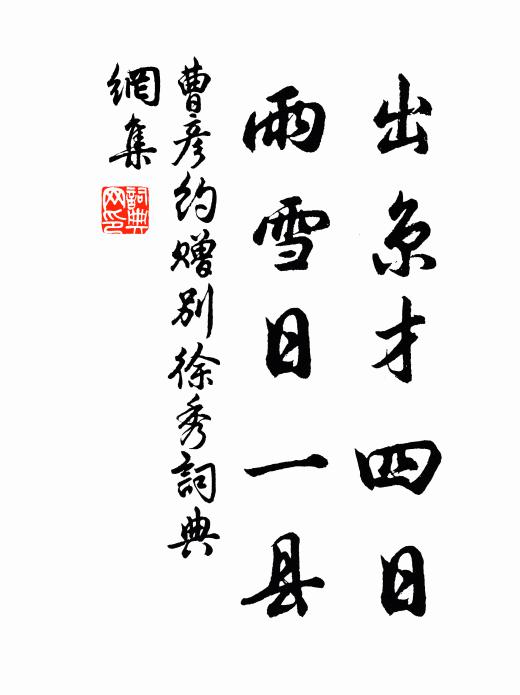 出京才四日
雨雪日一县
曹彦约赠别徐秀詞典
網集
詞典
网印